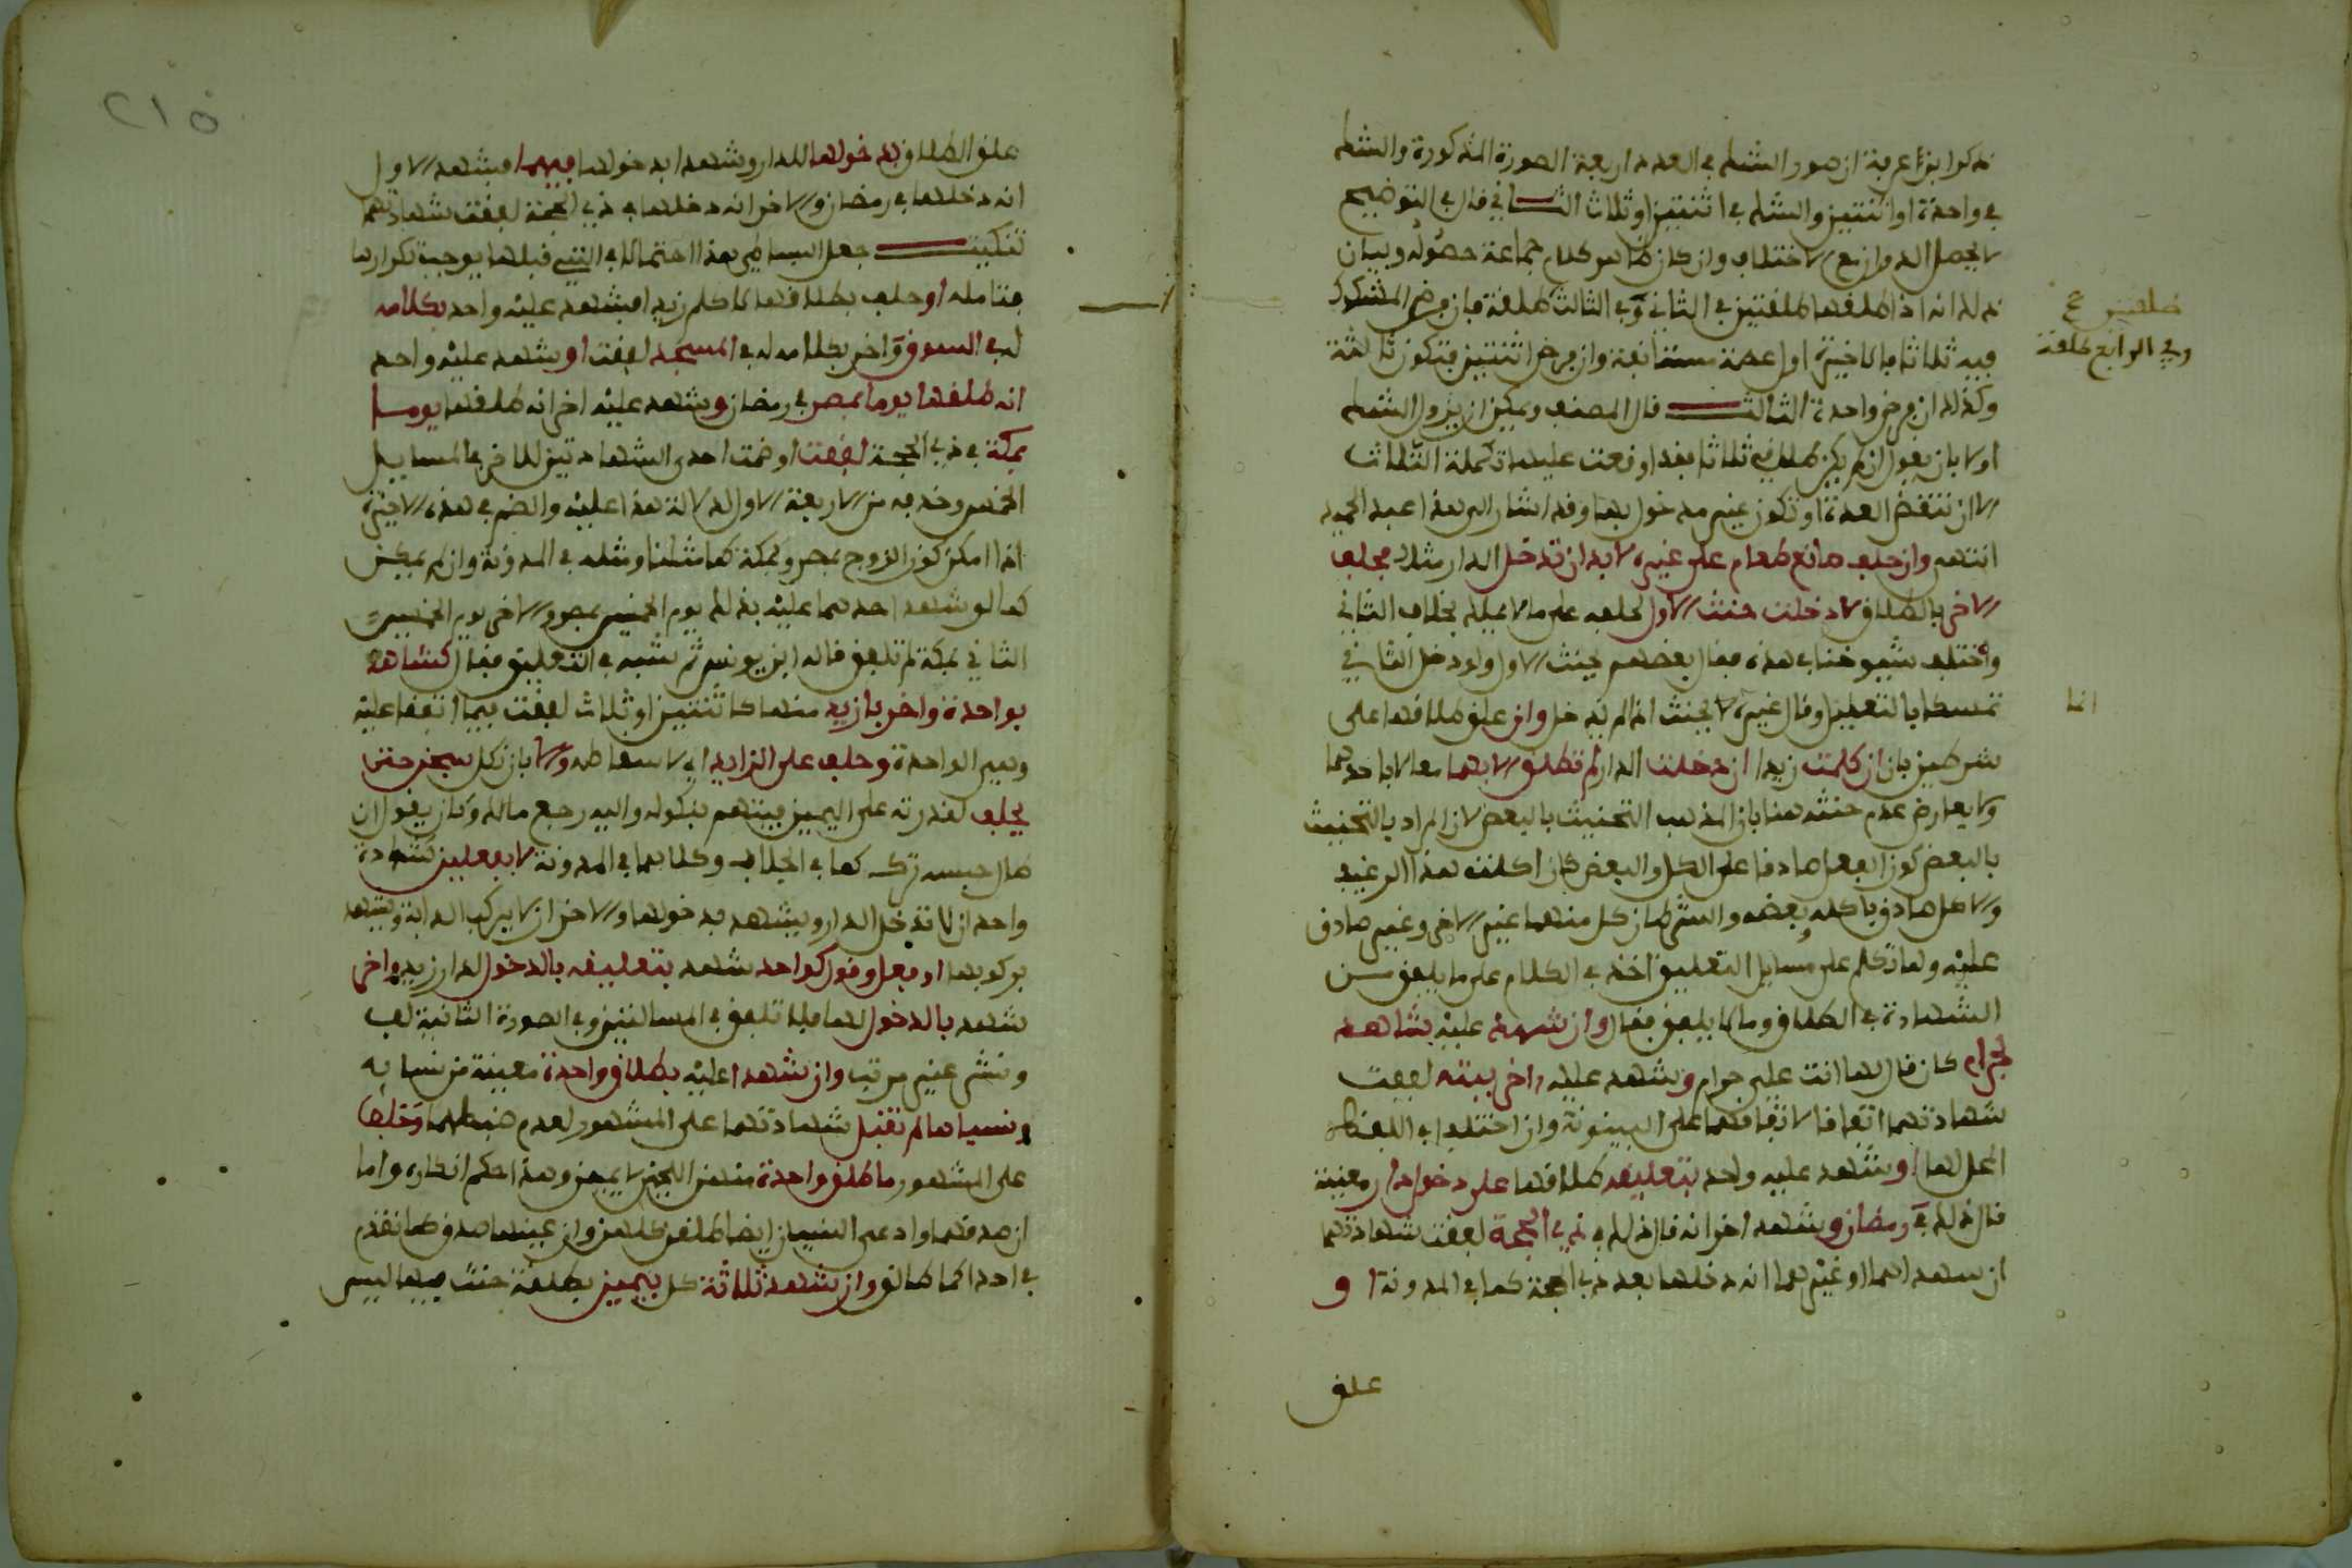 ذكر ابن عرفة ان صور الشك في العدد اربعة الصورة المذكورة والشك
في واحدة او اثنتين والشك في اثنتين او ثلاث الثـــاني قال في التوضيح
لا يحصل الدوران مع الاختلاف وان كان ظاهر كلام جماعة حصوله وبيان
ذلك انه اذا طلقها طلقتين في الثاني وفي الثالث طلقة فان فرض المشكوك
فيه ثلاثا فالاخيرة اول عصمة مستانفة وان فرض اثنتين فتكون ثالثة
وكذلك ان فرض واحدة الثالث قال المصنف ويمكن ان يزول الشك
اولا بان يقول ان لم يكن طلاقي ثلاثا فقد اوقعت عليها تكملة الثلاث
الا ان تنقضي العدة او تكون غير مدخول بها وقد اشار الى هذا عبد الحميد
انتهى وان حلف صانع طعام على غيره لا بد ان تدخل الدار مثلا فحلف
الاخر بالطلاق لا دخلت حنث الاول لحلفه على ما لا يملك بخلاف الثاني
واختلف شيوخنا في هذه فقال بعضهم يحنث الاول ولو دخل الثاني
تمسكا بالتعليل وقال غيره لا يحنث اذا لم يدخل وان علق طلاقها على
شرطين بان ان كلمت زيدا ان دخلت الدار لم تطلق الا بهما معا لا باحدهما
ولا يعارض عدم حنثه هنا بان المذهب التحنيث بالبعض لان المراد بالتحنيث
بالبعض كون الفعل صادقا على الكل والبعض كان اكلت هذا الرغيف
والاكل صادق باكله وبعضه والشرطان كل منهما غير الاخر وغير صادق
عليه ولما تكلم على مسايل التعليق اخذ في الكلام على ما يلفق من
الشهادة في الطلاق وما لا يلفق فقال وان شهد عليه شاهد
بحرام كان قال لها انت علي حرام وشهد عليه اخر ببتة لفقت
شهادتهما اتفاقا لاتفاقهما على البينونة وان اختلفا في اللفظ
المحل لها او شهد عليه واحد بتعليقه طلاقها على دخول دار معينة
قال ذلك في رمضان وشهد اخر انه قال ذلك في ذي الحجة لفقت شهادتهما
ان شهد اهما او غيرهما انه دخلها بعد ذي الحجة كما في المدونة او
علق
طلقتين صح
وفي الرابع طلقة
انما
٢١٥
علق الطلاق بدخولها الدار وشهدا بدخولها فيهما فيشهد الاول
انه دخلها في رمضان والاخر انه دخلها في ذي الحجة لفقت شهادتهما
تنكيت جعل البساطي هذا احتمالا في التي قبلها يوجب تكرارها
فتامله او حلف بطلاقها لا كلم زيدا فيشهد عليه واحد بكلامه
له في السوق واخر بكلامه له في المسجد لفقت او شهد عليه واحد
انه طلقها يوما بمصر في رمضان وشهد عليه اخر انه طلقها يوما
بمكة في ذي الحجة لفقت او ضمت احدى الشهادتين للاخرى في المسايل
الخمس وحذفه من الاربعة الاول لدلالة هذا عليه والضم في هذه الاخيرة
اذا امكن كون الزوج بمصر وبمكة كما مثلنا ومثله في المدونة وان لم يمكن
كما لو شهد احدهما عليه بذلك يوم الخميس بمصر والاخر يوم الخميس
الثاني بمكة لم تلفق قاله ابن يونس ثم شبه في التعليق فقال كشاهد
بواحدة واخر بازيد منها كاثنتين او ثلاث لفقت فيما اتفقا عليه
وهي الواحدة وحلف على الزايد اي لاسقاطه والا بان نكل سجن حتى
يحلف لقدرته على اليمين فيتهم بنكوله واليه رجع مالك وكان يقول ان
طال حبسه ترك كما في الجلاب وكلاهما في المدونة لا بفعلين كشهادة
واحد ان لا تدخل الدار ويشهد بدخولها والاخر ان لا يركب الدابة ويشهد
بركوبها او بفعل وقول كواحد شهد بتعليقه بالدخول لدار زيد واخر
شهد بالدخول لها فلا تلفق في المسالتين وفي الصورة الثانية لف
ونشر غير مرتب وان شهدا عليه بطلاق واحدة معينة من نسايه
ونسياها لم تقبل شهادتهما على المشهور لعدم ضبطهما وحلف
على المشهور ما طلق واحدة منهن اللخمي لا يمين وهذا حكم انكاره واما
ان صدقهما وادعى النسيان ايضا طلقن كلهن وان عينها صدق كما تقدم
في احداكما طالق وان شهد ثلاثة كل بيمين بطلقة حنث فيها ليس